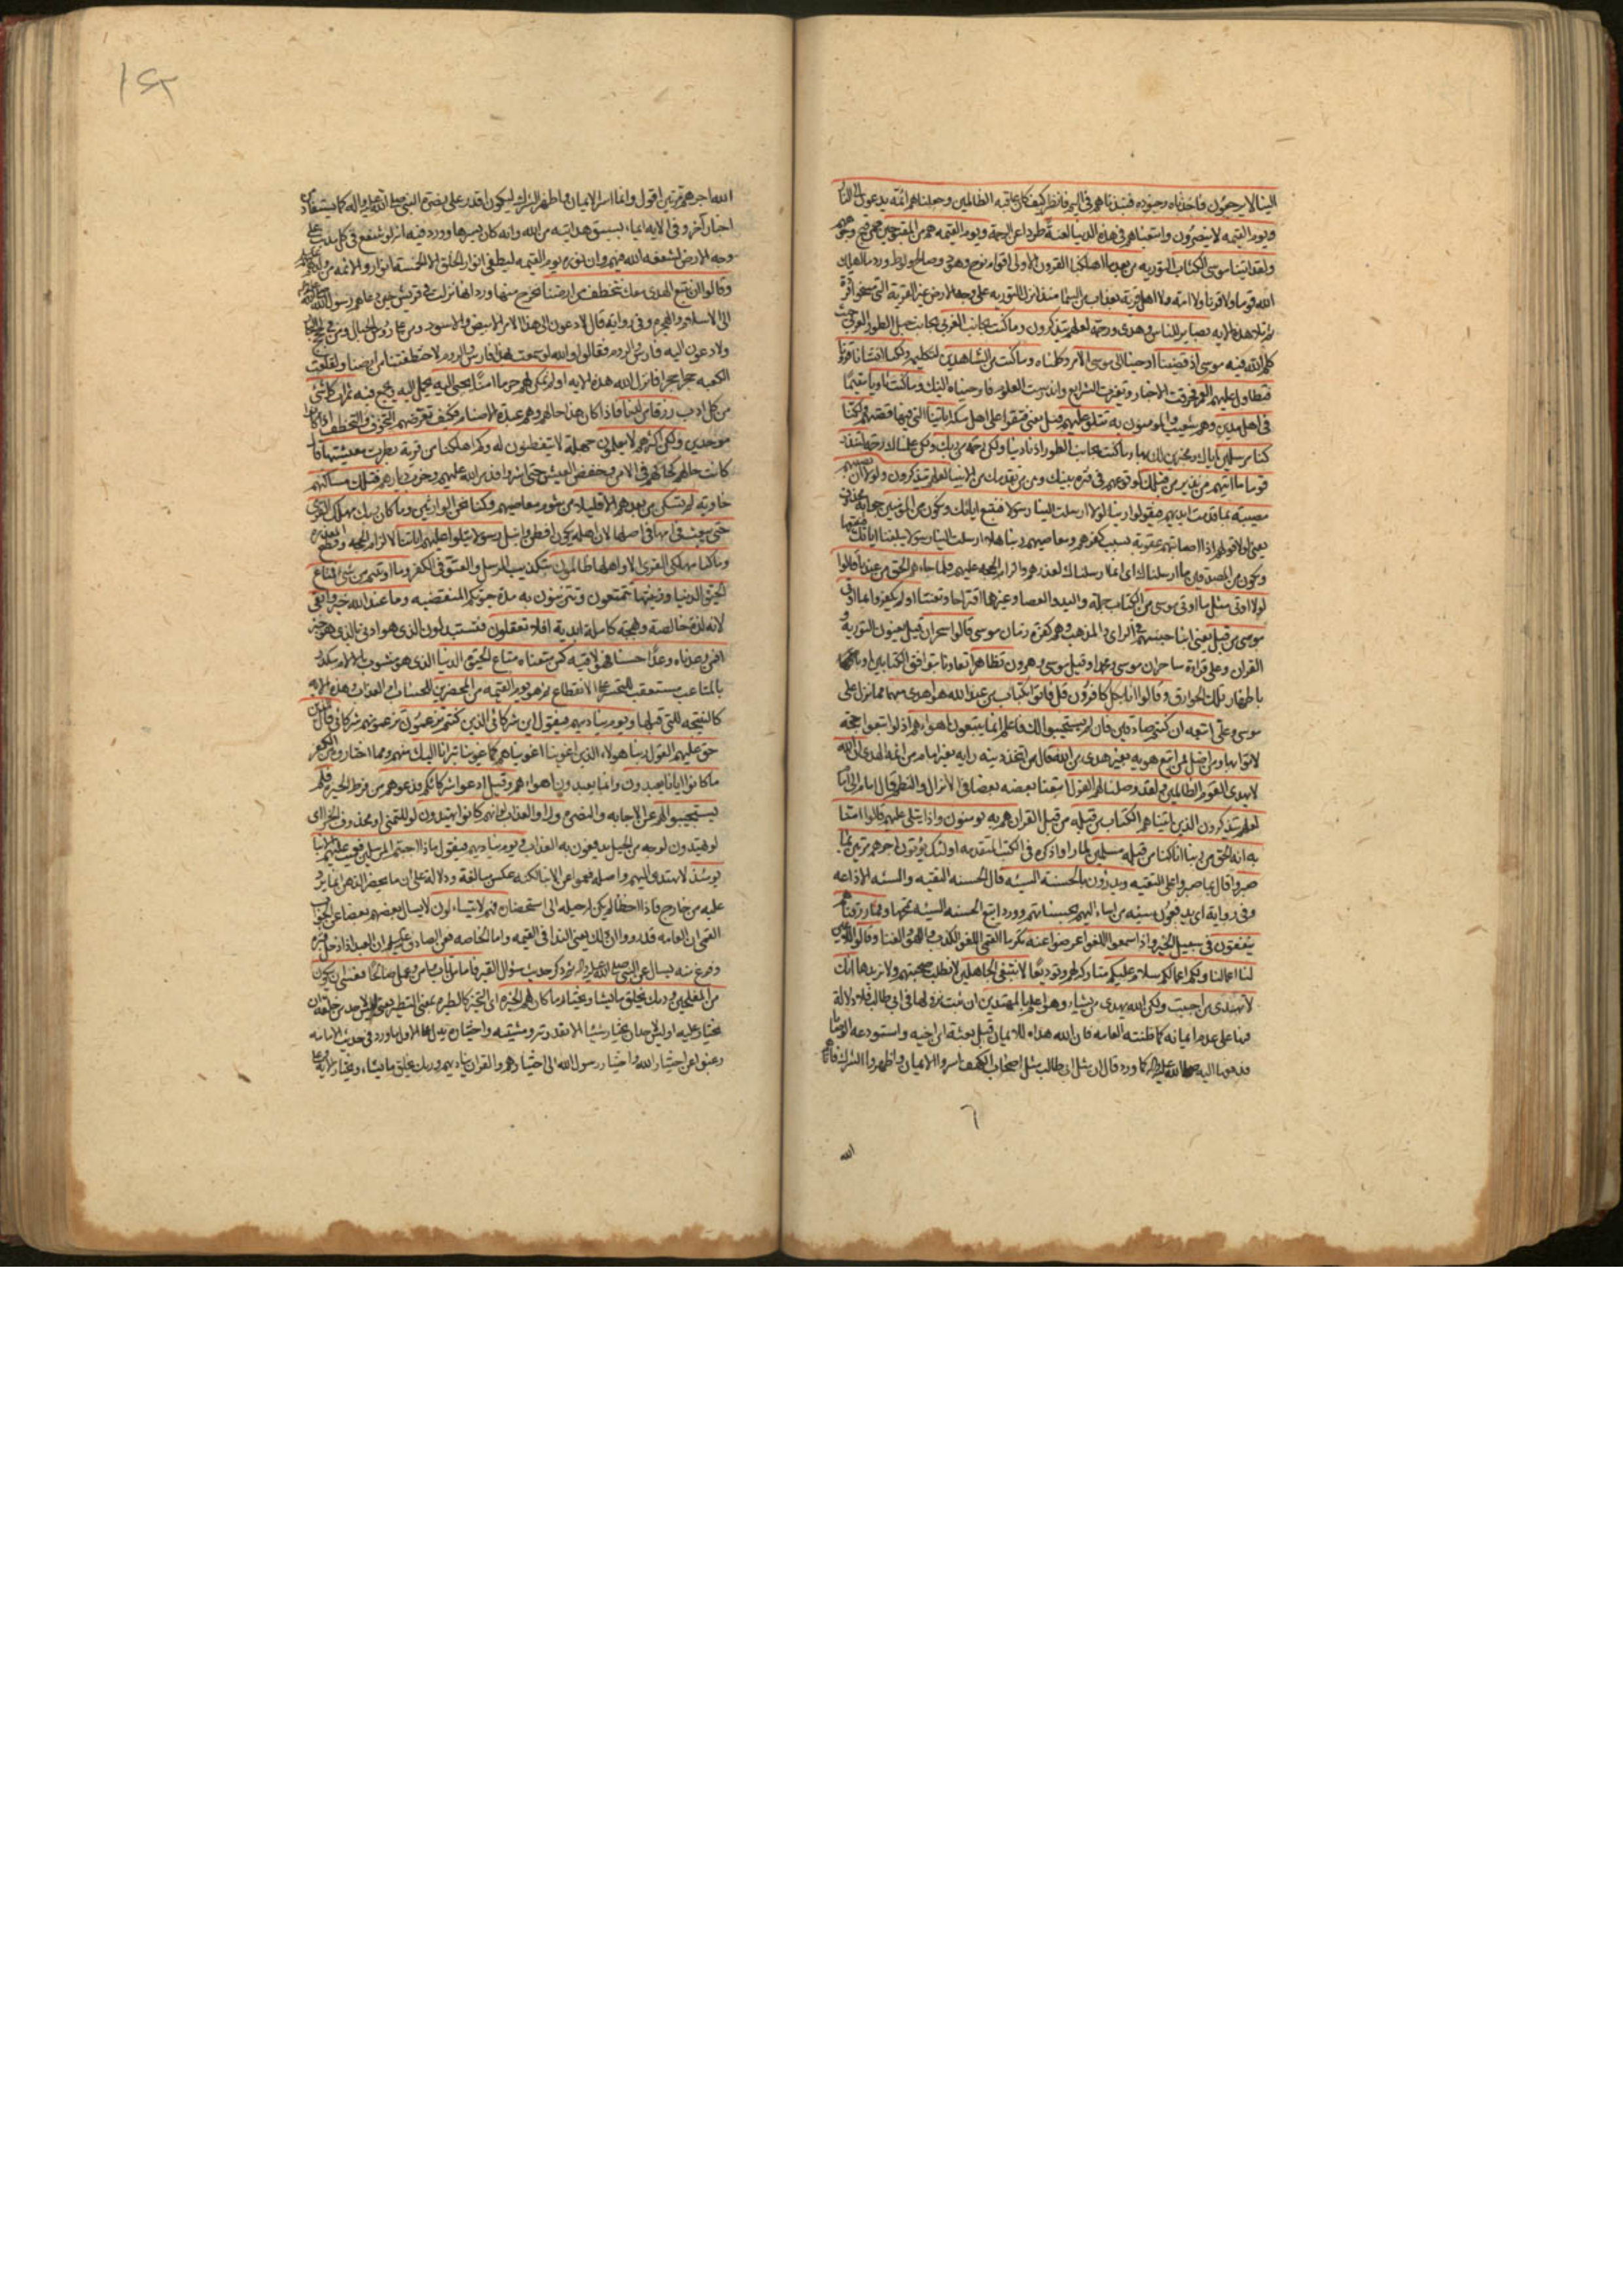 الينا لا يرجعون فاخذناه وجنوده فنبذناهم في اليم فانظر كيف كان عاقبة الظالمين وجعلناهم ائمة يدعون الى النار
ويوم القيمه لا ينصرون واتبعناهم في هذه الدنيا لعنة طردا عن الرحمة ويوم القيمه هم من المقبوحين
ولقد اتينا موسى الكتاب التوريه من بعد ما اهلكنا القرون الاولى اقوام نوح وهود وصالح ولوط
الله قوما ولا قرنا ولا امة ولا اهل قرية بعذاب من السماء منذ انزل التوريه على وجه الارض غير القرية التي مسخوا قردة
بصاير للناس وهدى ورحمة لعلهم يتذكرون وما كنت بجانب الغربي بجانب جبل الطور الغربي حيث
كلم الله فيه موسى اذ قضينا اوحينا الى موسى الامر وكلمناه وما كنت من الشاهدين لتكليمه ولكنا انشانا قرونا
فتطاول عليهم العمر فحرفت الاخبار وتغيرت الشرايع واندرست العلوم فاوحيناه اليك وما كنت ثاويا مقيما
في اهل مدين وهم شعيب والمؤمنون به تتلو عليهم اياتنا التي فيها قصتهم ولكنا
كنا مرسلين اياك ومخبرين لك بها وما كنت بجانب الطور اذ نادينا ولكن رحمة من ربك لتنذر
قوما ما اتيهم من نذير من قبلك لوقوعهم في فترة بينك وبين من تقدمك من الانبيا لعلهم يتذكرون ولولا ان تصيبهم
مصيبة بما قدمت ايديهم فيقولوا ربنا لولا ارسلت الينا رسولا فنتبع اياتك ونكون من المؤمنين جوابه محذوف
يعني لولا قولهم اذا اصابتهم عقوبة بسبب كفرهم ومعاصيهم ربنا هلا ارسلت الينا رسولا يبلغنا اياتك فنتبعها
ونكون من المصدقين ما ارسلناك اي انما ارسلناك لعذرهم والزام الحجة عليهم فلما جاءهم الحق من عندنا قالوا
لولا اوتي مثل ما اوتي موسى من الكتاب جملة واليد والعصا وغيرها اقتراحا وتعنتا اولم يكفروا بما اوتي
موسى من قبل يعني ابنا جنسهم في الراي والمذهب وهم كفرة زمان موسى قالوا سحران قيل يعنون التورية و
القران وعلى قراءة ساحران موسى ومحمد او قيل موسى وهرون تظاهرا تعاونا بتوافق الكتابين او
باظهار تلك الخوارق وقالوا انا بكل كافرون قل فاتوا بكتاب من عند الله هو اهدى منهما مما نزل على
موسى وعلي اتبعه ان كنتم صادقين فان لم يستجيبوا لك فاعلم انما يتبعون اهواءهم اذ لو اتبعوا حجة
لاتوا بها ومن اضل ممن اتبع هويه بغير هدى من الله قال من اتخذ دينه رايه بغير امام من ائمة الهدى ان الله
لا يهدى القوم الظالمين ولقد وصلنا لهم القول اتبعنا بعضه بعضا في الانزال والنظم قال امام الى امام
لعلهم يتذكرون الذين اتيناهم الكتاب من قبله من قبل القران هم به يؤمنون واذا يتلى عليهم قالوا امنا
به انه الحق من ربنا انا كنا من قبله مسلمين لما راوا ذكره في الكتب المتقدمه اولئك يؤتون اجرهم مرتين بما
صبروا قال بما صبروا على التقيه ويدرؤن بالحسنة السيئة قال الحسنه التقيه والسيئه الاذاعه
وفي رواية اي يدفعون سيئه من اساء اليهم بحسناتهم وورد اتبع الحسنه السيئه تمحها ومما رزقناهم
ينفقون في سبيل الخير واذا سمعوا اللغو اعرضوا عنه تكرما القمي اللغو الكذب واللهو والغنا وقالوا
لنا اعمالنا ولكم اعمالكم سلام عليكم متاركة لهم وتوديعا لا نبتغي الجاهلين لا نطلب صحبتهم ولا نريدها انك
لا تهدى من احببت ولكن الله يهدى من يشاء وهو اعلم بالمهتدين ان ثبت نزولها في ابي طالب فلا دلالة
فيها على عدم ايمانه كما ظنته العامه فان الله هداه للايمان قبل بعثة ابن اخيه واستودعه الوصايا
فدفعها اليه صلى الله عليه واله كما ورد قال ان مثل ابي طالب مثل اصحاب الكهف اسروا الايمان واظهروا الشرك فاتاهم
الله
١٤٢
الله اجرهم مرتين اقول وانما اسر الايمان واظهر الشرك ليكون اقدر على نصرة النبي صلى الله عليه واله كما يستفاد من
اخبار آخر وفي الاية ايماء بسبق هدايته من الله وانه كان يسرها وورد فيه انه لو شفع في كل مذنب على
وجه الارض لشفعه الله فيهم وان نوره يوم القيمه ليطفي انوار الخلق الا الخمسة انوار والائمه من ولدهم
وقالوا ان نتبع الهدى معك نتخطف من ارضنا نخرج منها ورد انها نزلت في قريش حين دعاهم رسول الله
الى الاسلام والهجرة وفي رواية قال لادعون الى هذا الامر الابيض والاسود ومن على رؤس الجبال ومن في لجج البحار
ولادعون اليه فارس والروم فقالوا والله لو سمعت بهذا فارس والروم لاختطفتنا من ارضنا ولقلعت
الكعبه حجرا حجرا فانزل الله هذه الايه اولم نمكن لهم حرما امنا يجبى اليه يحمل اليه ويجمع فيه ثمرات كل شئ
من كل اوب رزقا من لدنا فاذا كان هذا حالهم وهم عبدة الاصنام فكيف نعرضهم للتخوف والتخطف اذا كانوا
موحدين ولكن اكثرهم لا يعلمون جهلة لا يتفطنون له وكم اهلكنا من قرية بطرت معيشتها
كانت حالهم كحالكم في الامن وخفض العيش حتى اشروا فدمر الله عليهم وخرب ديارهم فتلك مساكنهم
خاوية لم تسكن من بعدهم الا قليلا من شوم معاصيهم وكنا نحن الوارثين وما كان ربك مهلك القرى
حتى يبعث في امها في اصلها لان اهله يكون افطن وانبل رسولا يتلوا عليهم اياتنا لالزام الحجة وقطع المعذرة
وما كنا مهلكي القرى الا واهلها ظالمون بتكذيب الرسل والعتو في الكفر وما اوتيتم من شئ فمتاع
الحيوة الدنيا وزينتها تتمتعون وتتزينون به مدة حيوتكم المنقضيه وما عند الله خير وابقى
لانه لذة خالصة وبهجة كاملة ابدية افلا تعقلون فتستبدلون الذى هو ادنى بالذى هو خير
افمن وعدناه وعدا حسنا فهو لاقيه كمن متعناه متاع الحيوة الدنيا الذى هو مشوب بالالام مكدر
بالمتاعب مستعقب للتحسر على الانقطاع ثم هو يوم القيمه من المحضرين للحساب او العذاب وهذه الايه
كالنتيجه للتي قبلها ويوم يناديهم فيقول اين شركائي الذين كنتم تزعمون تزعمونهم شركائي قال الذين
حق عليهم القول ربنا هولاء الذين اغوينا اغويناهم كما غوينا تبرانا اليك منهم ومما اختاروه من الكفر
ما كانوا ايانا يعبدون وانما يعبدون اهواءهم وقيل ادعوا شركائكم فدعوهم من فرط الحيرة فلم
يستجيبوا لهم عن الاجابه والنصرة وراوا العذاب لو انهم كانوا يهتدون لو للتمني او محذوف الجزاء اى
لو يهتدون لوجه من الحيل يدفعون به العذاب ويوم يناديهم فيقول ماذا اجبتم المرسلين فعميت عليهم الانبا
يومئذ لا تهتدى اليهم واصله فعموا عن الانبا لكنه عكس مبالغة ودلالة على ان ما يحضر الذهن انما يرد
عليه من خارج فاذا اخطا لم يكن له حيلة الى استحضاره فهم لا يتساءلون لا يسال بعضهم بعضا عن الجواب
القمي ان العامه قد رووا ان ذلك يعني الندا في القيمه واما الخاصه فعن الصادق ان العبد اذا دخل قبره
وفزع منه يسال عن النبي صلى الله عليه واله ثم ذكر حديث سؤال القبر فاما من تاب وامن وعمل صالحا فعسى ان يكون
من المفلحين وربك يخلق ما يشا ويختار ما كان لهم الخيرة اى التخير كالطيرة بمعنى التطير يعني ليس لاحد من خلقه ان
يختار عليه او ليس لاحد ان يختار شيئا الا بقدرته ومشيته واختياره يدل على الاول ما ورد في حديث الامامه
رغبوا عن اختيار الله واختيار رسول الله الى اختيارهم والقران يناديهم وربك يخلق ما يشاء ويختار الاية